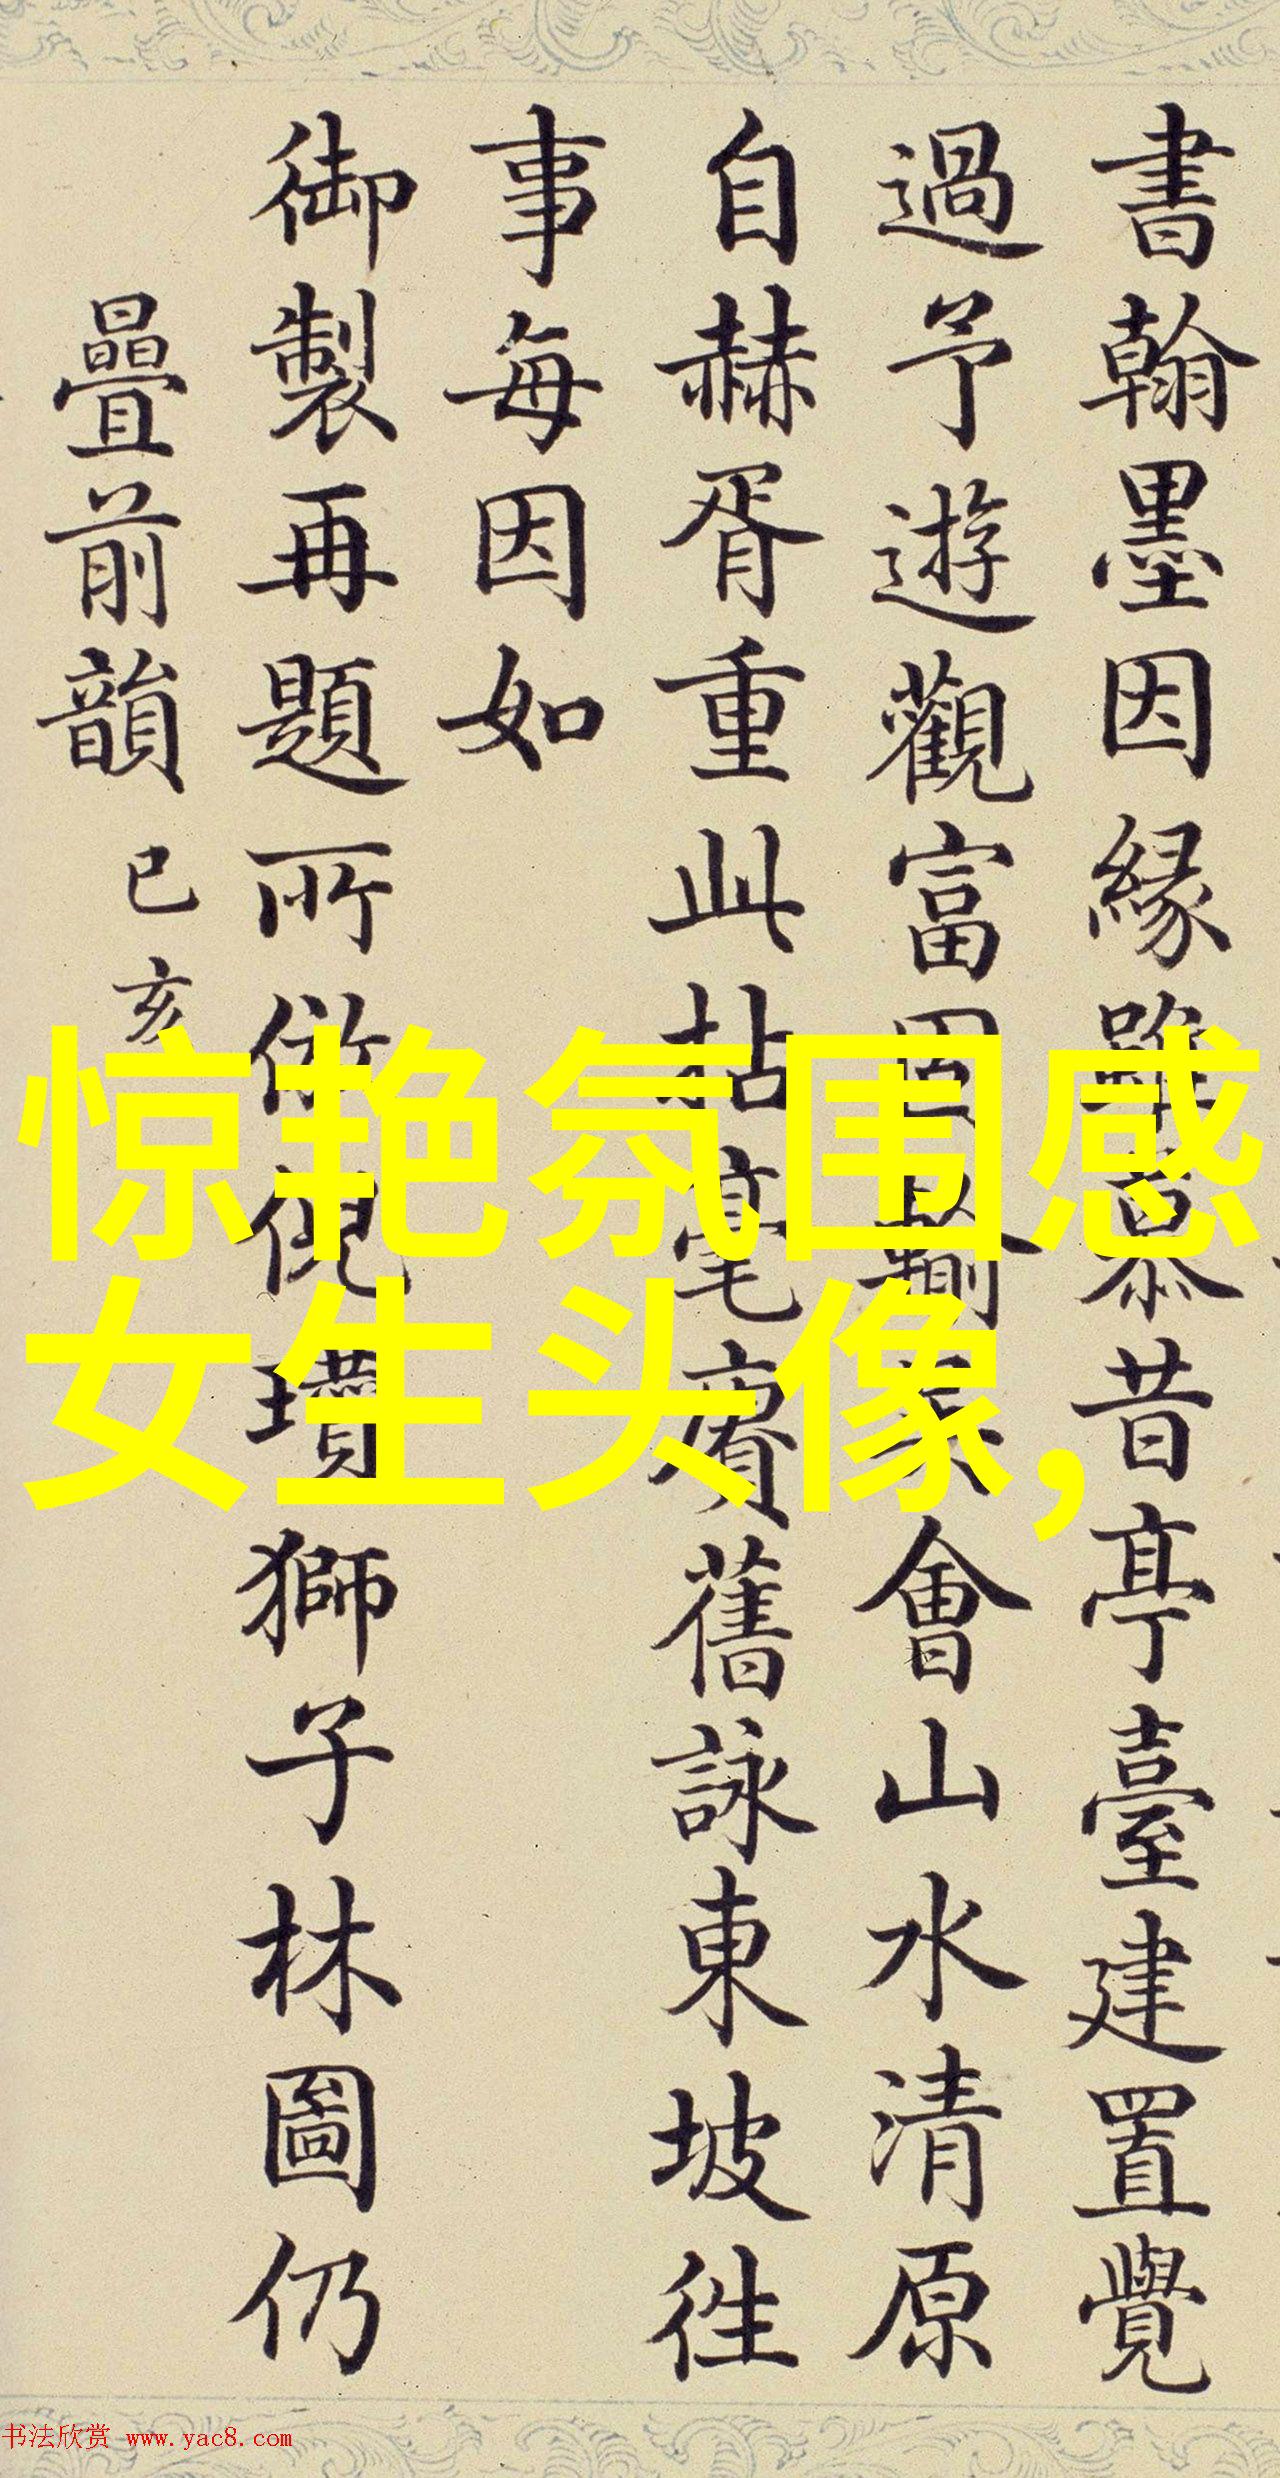 書翰墨因緣雖慕昔亭臺建置覺
過予遊觀富因輸 會山水清原
自赫胥重此拈毫賡舊詠東坡徃
事每因如
御製再題所倣倪瓚獅子林圖仍
疊前韻 已亥
惊艳氛围感
女生头像,
书法欣赏 www.yac8.com